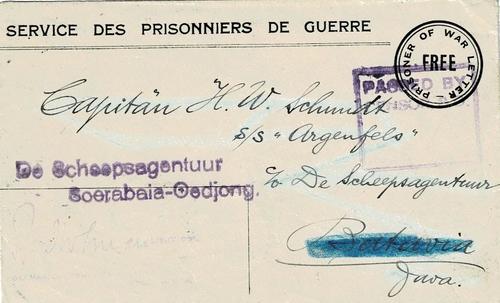 SERVICE DES PRISONNIERS DE GUERRE
PRISONER OF WAR LETTER
FREE
PASSED BY
Capitän H. W. Schmidt
s/s "Argenfels"
De Scheepsagentuur
Soerabaia-Oedjong.
c/o De Scheepsagentuur
Batavia
Java.